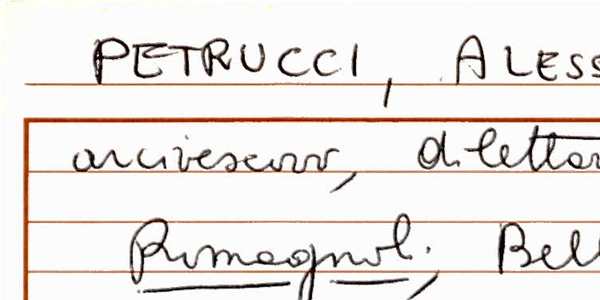 PETRUCCI, ALESS
arcivescovo, dilettan
Romagnoli. Bell